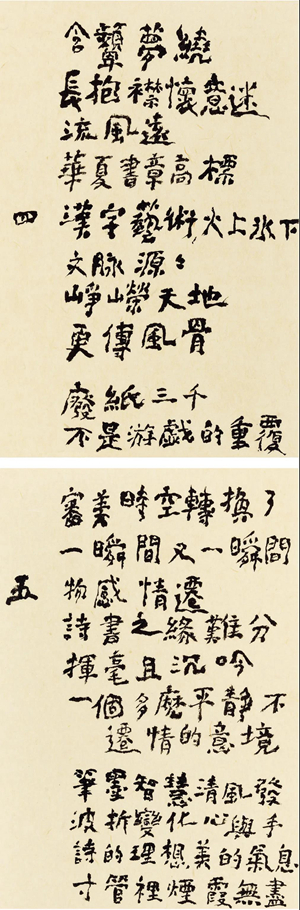 含顰夢繞
長抱襟懷意迷
流風遠
華夏書章高標
四
漢字藝術火上冰下
文脉源々
崢嶸天地
更傳風骨
廢紙三千
不是游戲的重覆
審美時空轉換了
一瞬間又一瞬間
五
物感情遷
詩書之緣難分
揮毫且沉吟
一個多麽平靜不
遷情的意境
筆墨智慧清風發手
波折變化心與息
詩的理想美的氣
寸管裡煙霞無盡